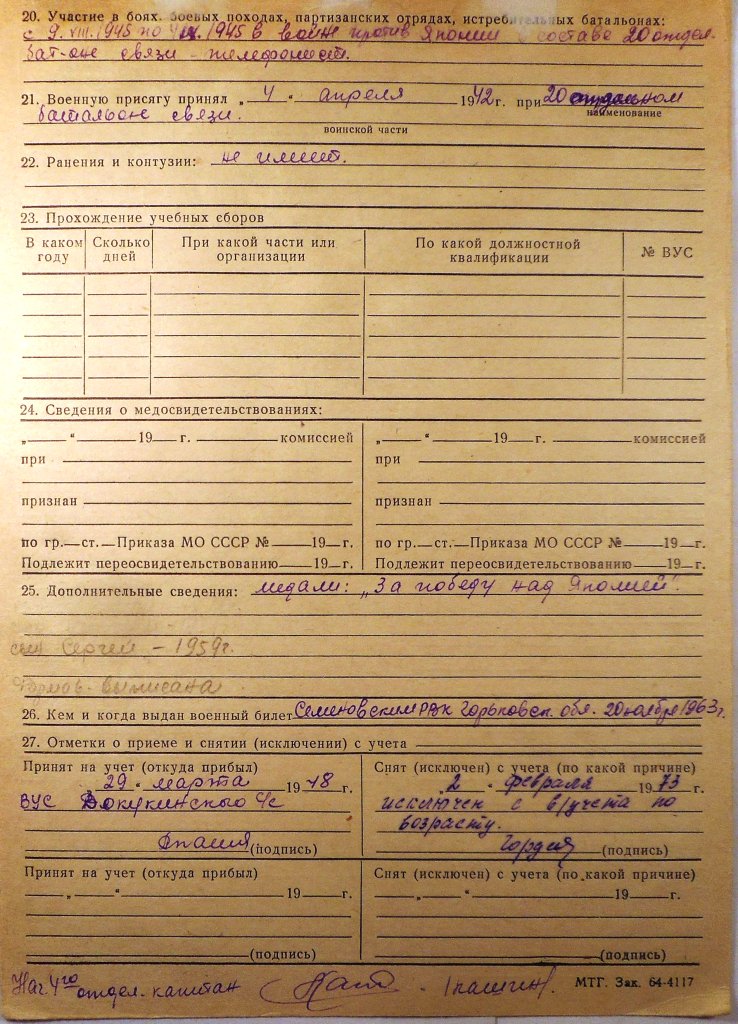 20. Участие в боях, боевых походах, партизанских отрядах, истребительных батальонах:
с 9.VIII.1945 по IX.1945 в войне против Японии в составе 20 отдел.
бат-оне связи - телефонист.
21. Военную присягу принял „4“ апреля 1942 г. при 20 отдельном
наименование
батальоне связи.
воинской части
22. Ранения и контузии: не имеет.
23. Прохождение учебных сборов
В каком году Сколько дней При какой части или организации По какой должностной квалификации № ВУС
24. Сведения о медосвидетельствованиях:
„ “ 19 г. комиссией „ “ 19 г. комиссией
при при
признан признан
по гр. ст. Приказа МО СССР № 19 г. по гр. ст. Приказа МО СССР № 19 г.
Подлежит переосвидетельствованию 19 г. Подлежит переосвидетельствованию 19 г.
25. Дополнительные сведения: медали: „За победу над Японией“.
сын Сергей - 1959г.
выписана
26. Кем и когда выдан военный билет Семеновским РВК Горьковск. обл. 20 ноября 1963г.
27. Отметки о приеме и снятии (исключении) с учета
Принят на учет (откуда прибыл)
„29“ марта 19 г.
ВУС с/с
(подпись)
Снят (исключен) с учета (по какой причине)
„2“ февраля 1973 г.
исключен с в/учета по
возрасту.
(подпись)
Принят на учет (откуда прибыл)
„ “ 19 г.
(подпись)
Снят (исключен) с учета (по какой причине)
„ “ 19 г.
(подпись)
Нач. 4го отдел. капитан
МТГ. Зак. 64-4117